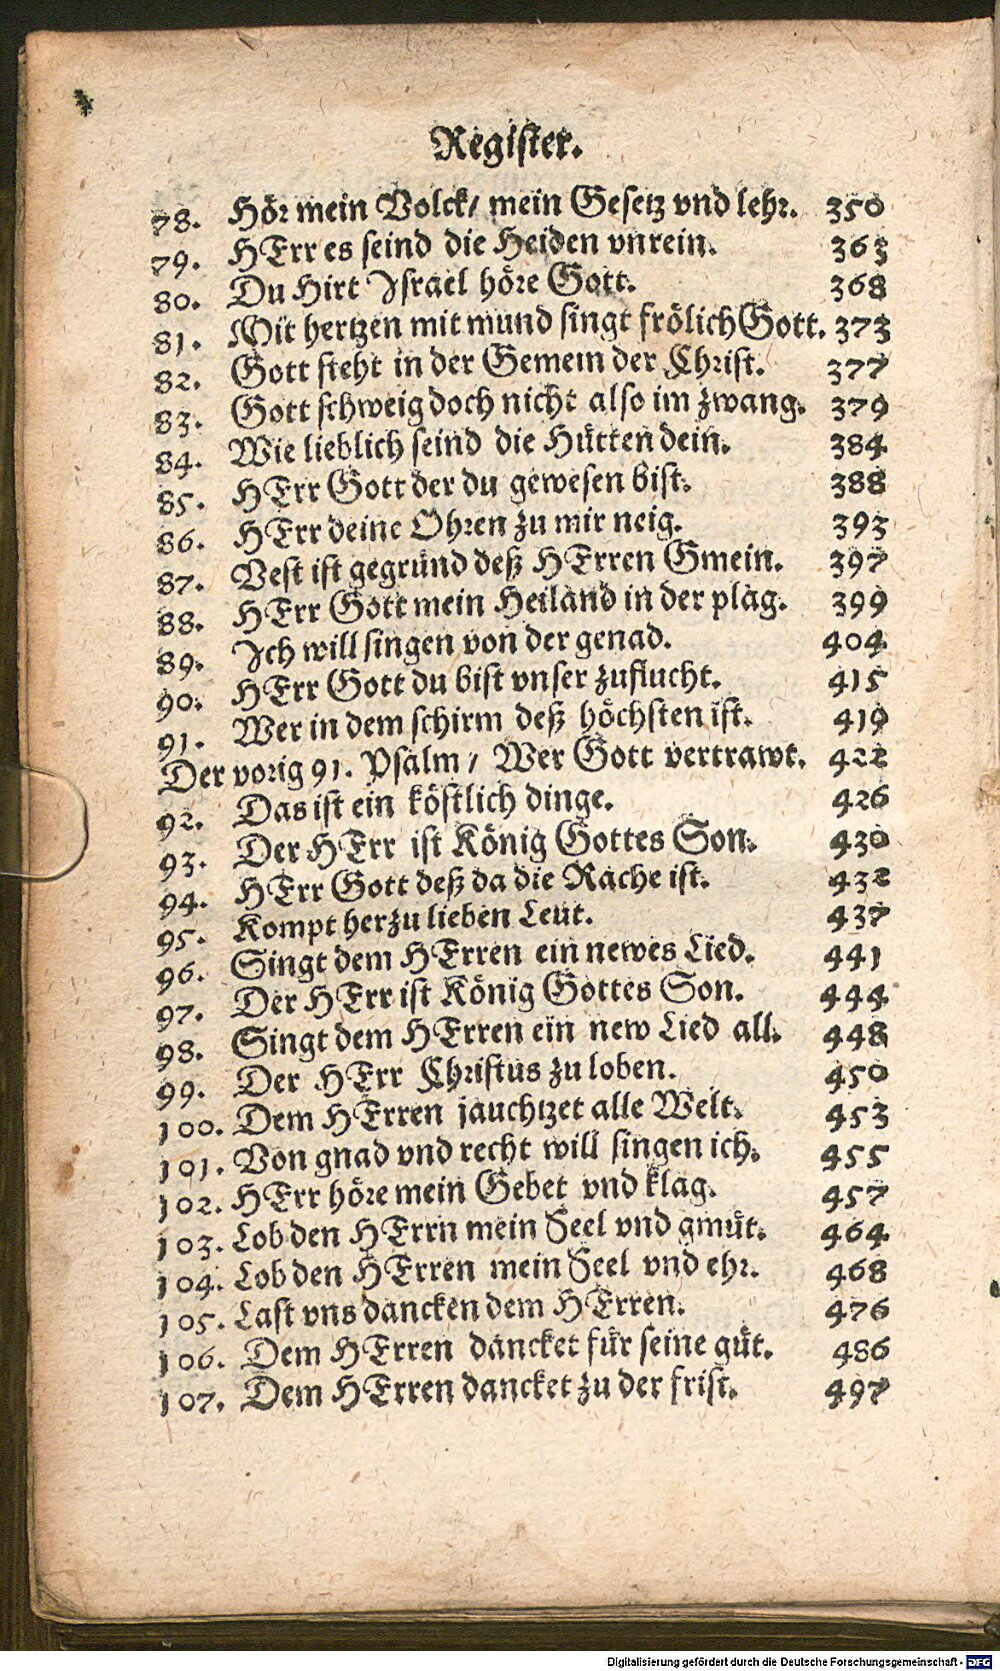 Register.
78. Hör mein Volck/ mein Gesetz vnd lehr. 350
79. HErr es seind die Heiden vnrein. 363
80. Du Hirt Israel höre Gott. 368
81. Mit hertzen mit mund singt frölich Gott. 373
82. Gott steht in der Gemein der Christ. 377
83. Gott schweig doch nicht also im zwang. 379
84. Wie lieblich seind die Hütten dein. 384
85. HErr Gott der du gewesen bist. 388
86. HErr deine Ohren zu mir neig. 393
87. Vest ist gegründ deß HErren Gmein. 397
88. HErr Gott mein Heiland in der plag. 399
89. Ich will singen von der genad. 404
90. HErr Gott du bist vnser zuflucht. 415
91. Wer in dem schirm deß höchsten ist. 419
Der vorig 91. Psalm/ Wer Gott vertrawt. 422
92. Das ist ein köstlich dinge. 426
93. Der HErr ist König Gottes Son. 430
94. HErr Gott deß da die Rache ist. 432
95. Kompt herzu lieben Leut. 437
96. Singt dem HErren ein newes Lied. 441
97. Der HErr ist König Gottes Son. 444
98. Singt dem HErren ein new Lied all. 448
99. Der HErr Christus zu loben. 450
100. Dem HErren jauchtzet alle Welt. 453
101. Von gnad vnd recht will singen ich. 455
102. HErr höre mein Gebet vnd klag. 457
103. Lob den HErrn mein Seel vnd gmüt. 464
104. Lob den HErren mein Seel vnd ehr. 468
105. Last vns dancken dem HErren. 476
106. Dem HErren dancket für seine güt. 486
107. Dem HErren dancket zu der frist. 497
Digitalisierung gefördert durch die Deutsche Forschungsgemeinschaft - DFG